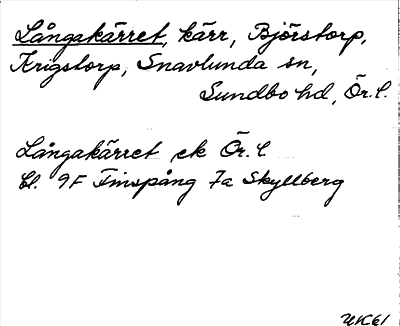 Långakärret, kärr, Björstorp,
Krigstorp, Snavlunda sn,
Sundbo hd, Ör. l.
Långakärret ek Ör. l
bl. 9F Finspång 7a Skyllberg
UK61